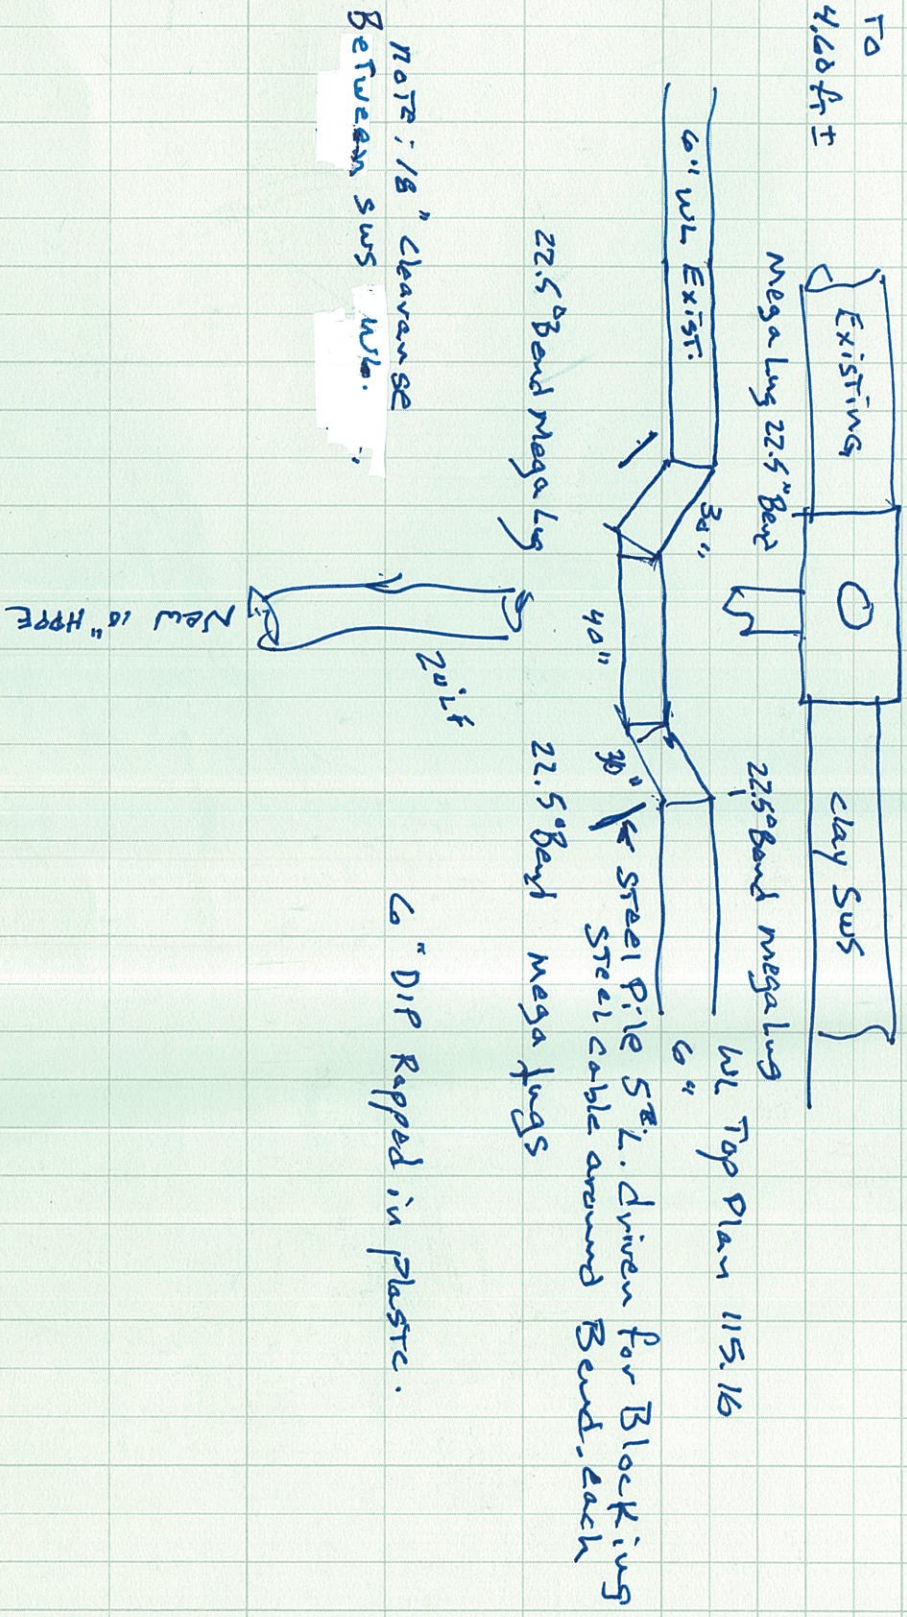 To
4.60 ft ±
Existing
clay SWS
Mega Lug 22.5° Bend
22.5° Bend megaLug
WL Top Plan 115.16
6" WL Exist.
30"
40"
30"
6"
Steel Pile 5 ft. L. driven for Blocking
Steel cable around Bend. each
22.5° Bend Mega Lug
22.5° Bend Mega Lugs
20' Lf
6" DIP Rapped in Plastc.
Note: 18" Clearanse
Between SWS WL.
New 10" HDPE